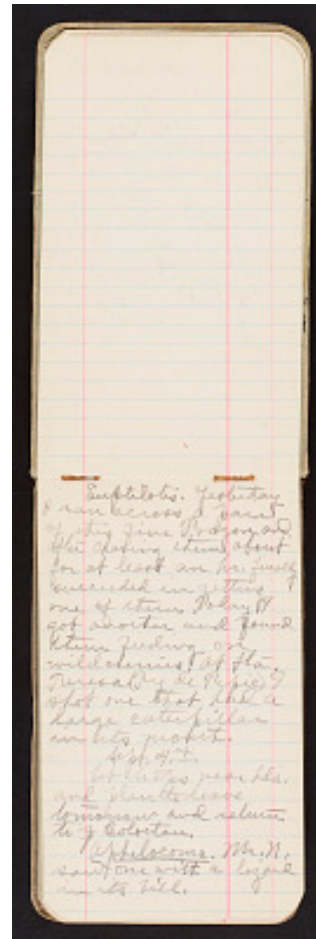 Euptilotis. Yesterday
I ran across a pair
of this fine Trogon and
after chasing them about
for at least an hr. finally
succeeded in getting
one of them. Today I
got another and found
them feeding on
wild cherries. At Sta.
Teresa I
shot one that had a
large caterpillar
in its mouth.
Sept. 4.
near Sta.
and plan to leave
tomorrow and return
to Colotlan.
Aphelocoma. Mr. N.
saw one with a lizard
in its bill.